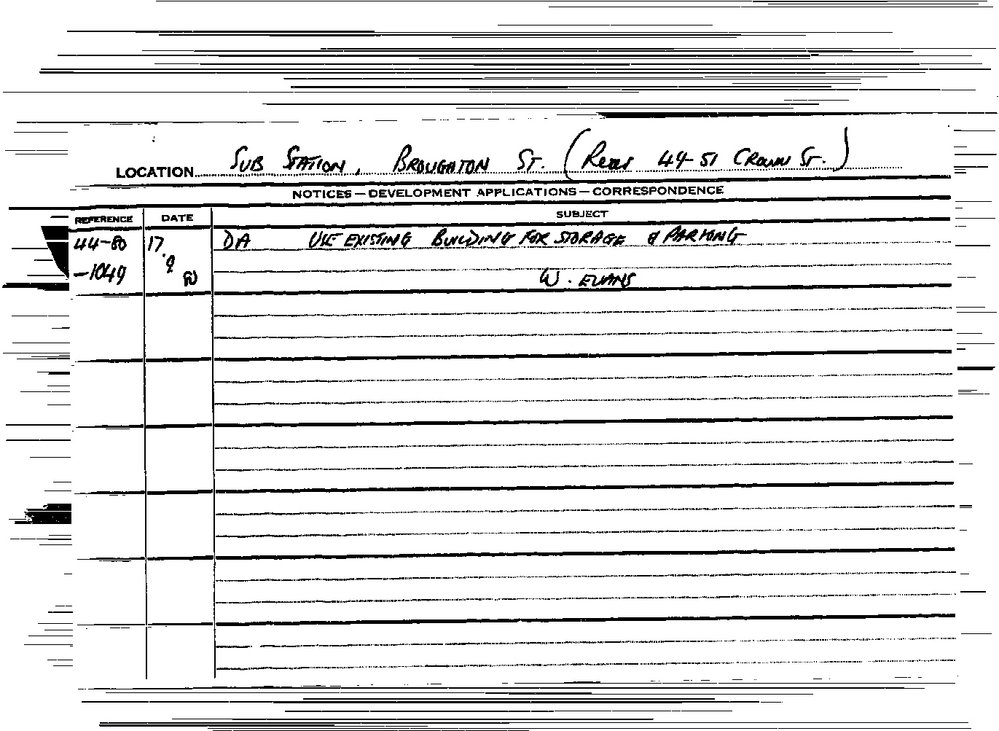 LOCATION SUB STATION, BROUGHTON ST. (REAR 49-51 CROWN ST.)
NOTICES—DEVELOPMENT APPLICATIONS—CORRESPONDENCE
REFERENCE DATE SUBJECT
44-80 17. DA USE EXISTING BUILDING FOR STORAGE & PARKING
-1049 9 W. EVANS